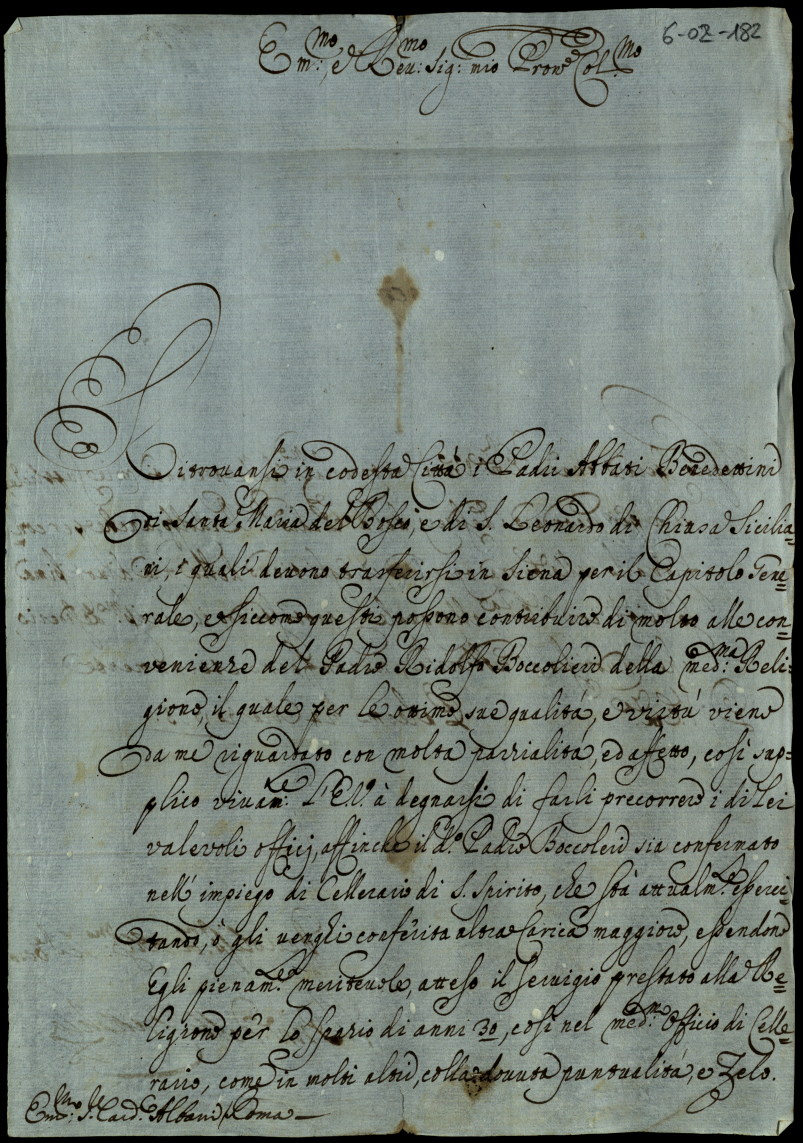 6-02-182
Em:mo, e Reu:mo Sig: mio Prone Col:mo
Ritrouansi in codesta Città i Padri Abbati Benedettini
di Santa Maria del Bosco, e di S. Leonardo di Chiusa Sicilia=
ni, i quali deuono trasferirsi in Siena per il Capitolo Gene=
rale, e siccome questi possono contribuire di molto alle con=
venienze del Padre Ridolfo Boccolieri della med:ma Reli=
gione, il quale per le ottime sue qualità, e virtù viene
da me riguardato con molta parzialità, ed affetto, così sup=
plico viuam:te L'E.V. à degnarsi di farli precorrere i di Lei
valevoli officj, affinche il d.o Padre Boccoleri sia confermato
nell'impiego di Cellerario di S. Spirito, che stà attualm:te esserci=
tando, ò gli venghi conferita altra Carica maggiore, essendone
Egli pienam:te meriteuole, atteso il seruigio prestato alla Re=
ligione per lo spazio di anni 30, così nel med:mo Officio di Celle=
rario, come in molti altri, colla douuta puntualità, e Zelo.
Em:mo S.e Card.e Albani Roma